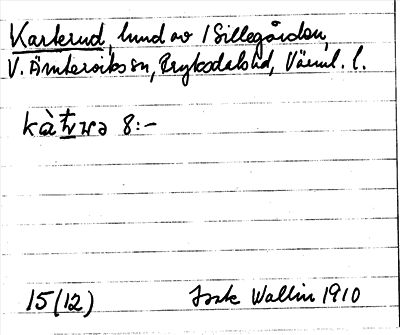 Karterud, lund av 1 Sillegården,
V. Ämterviks sn, Fryksdals hd, Värml. l.
kàtvrə 8:-
15(12) Isak Wallin 1910